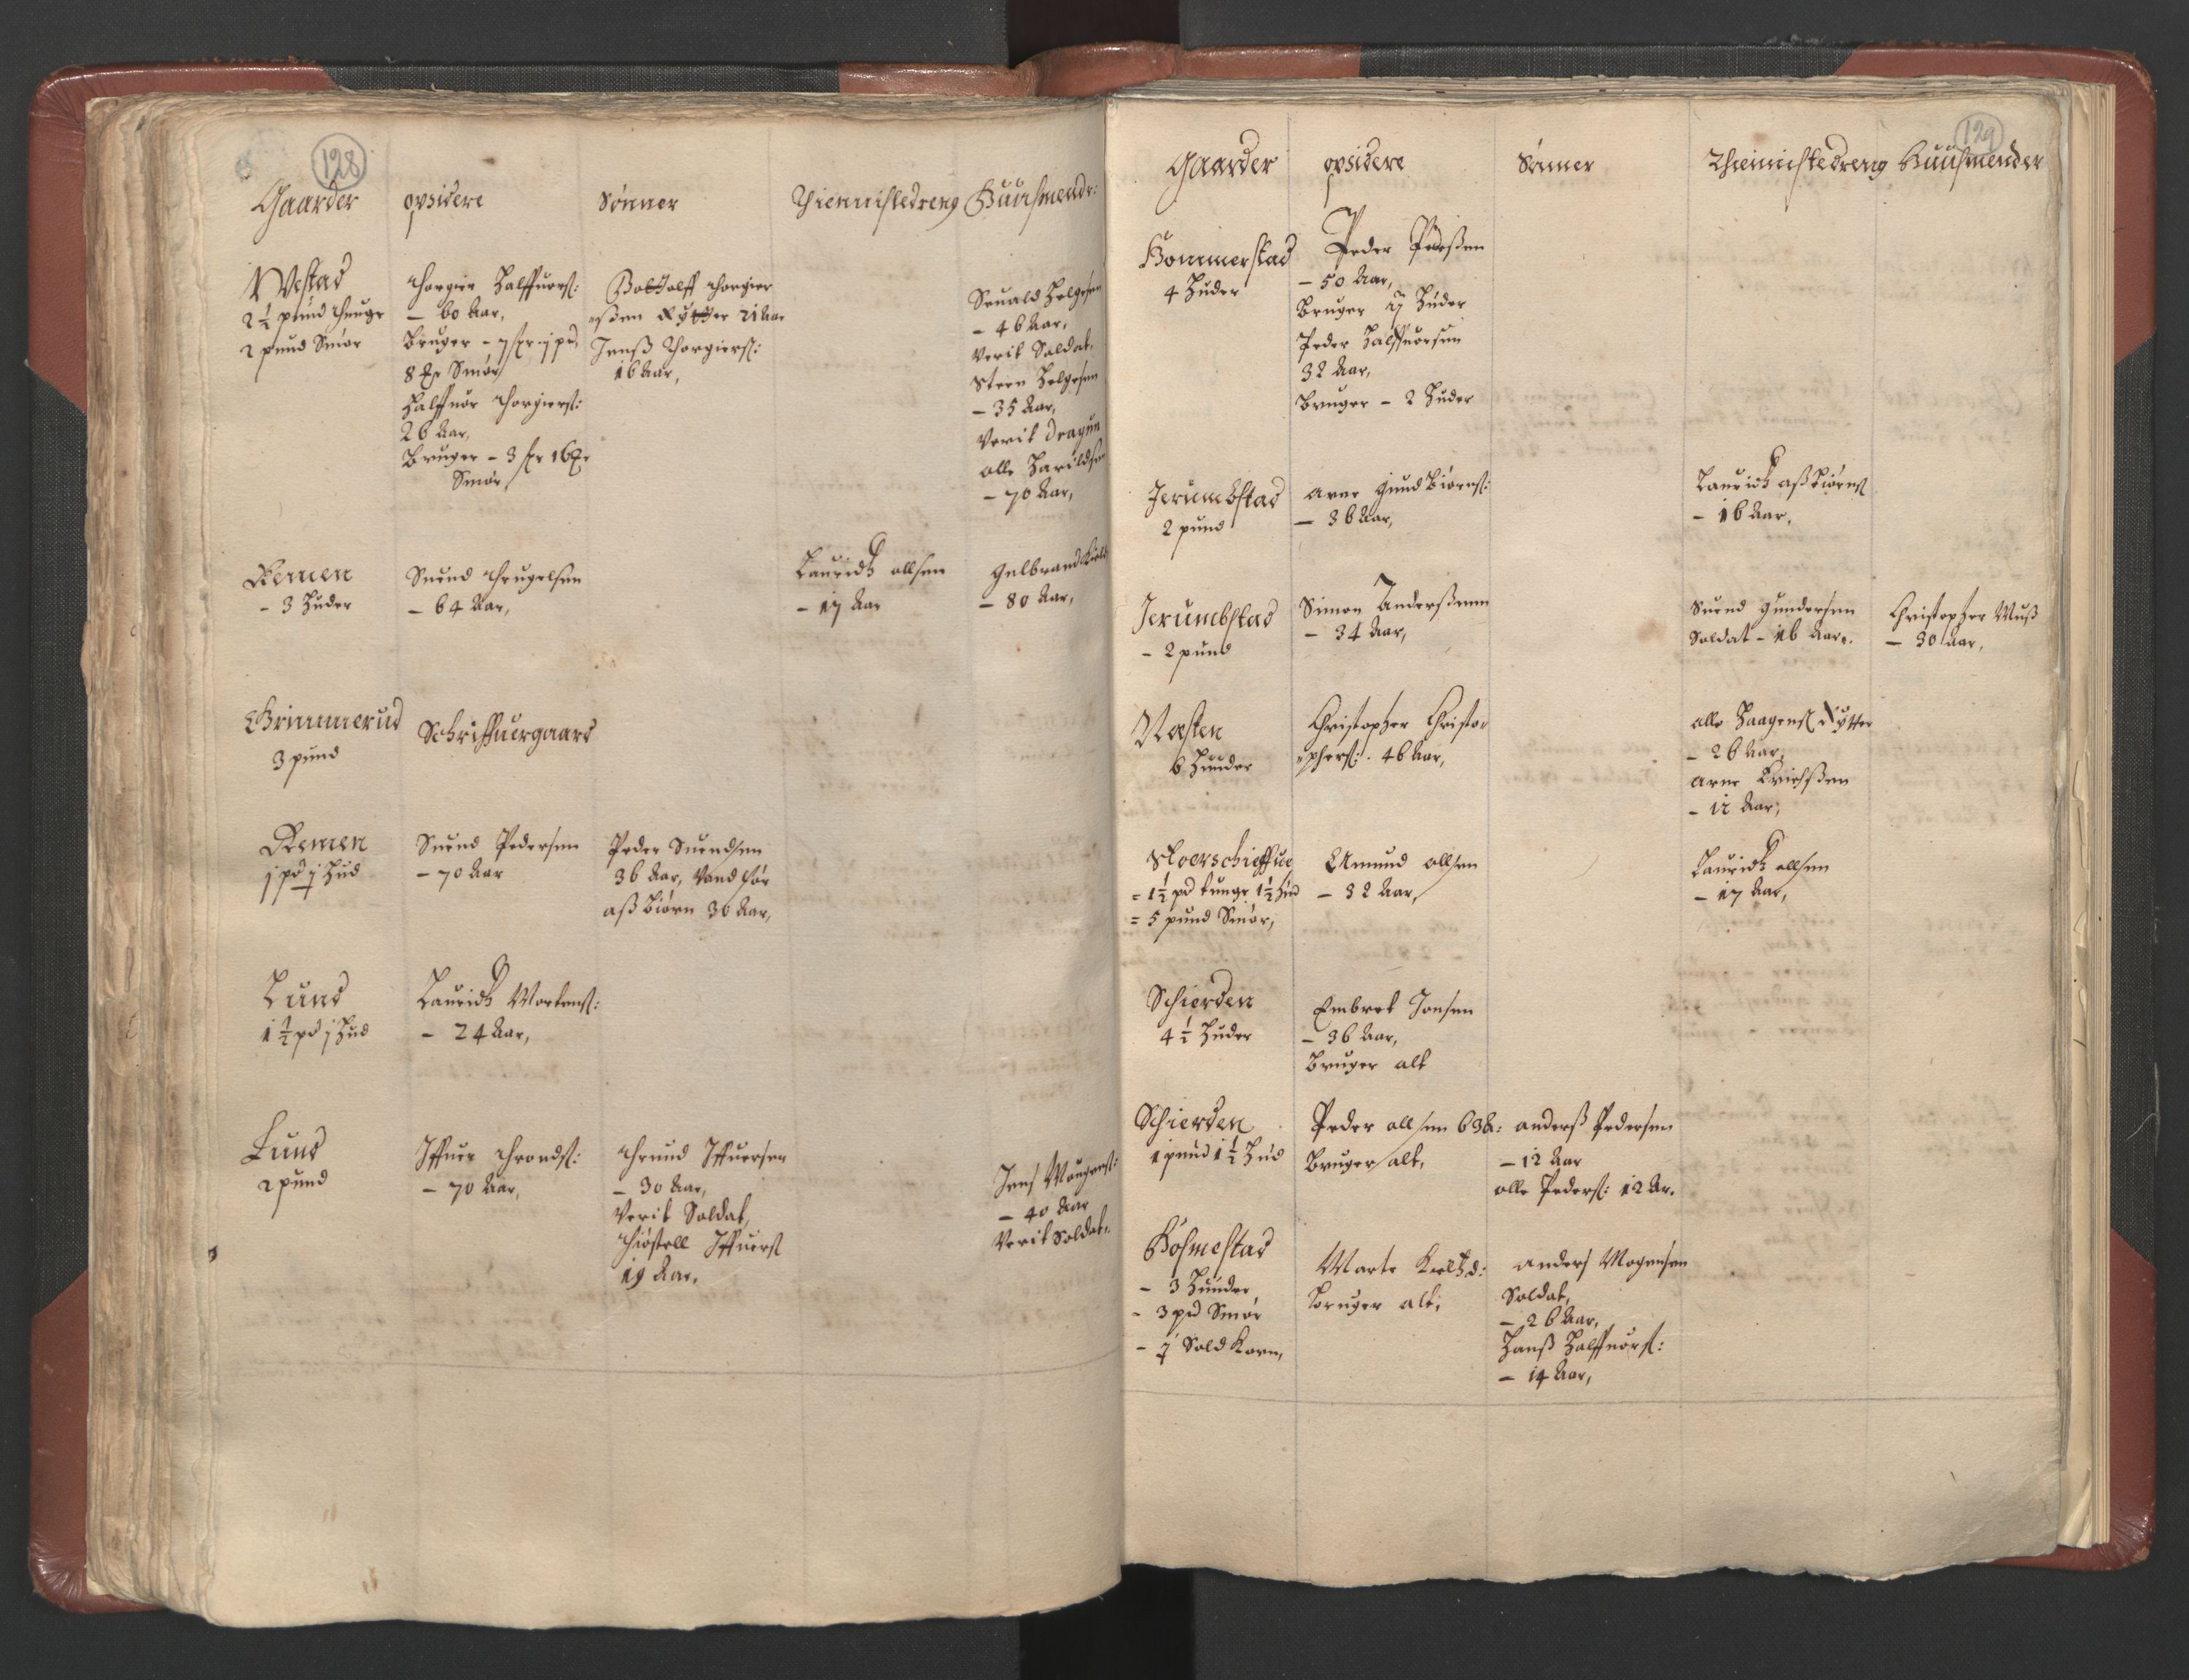 128
Gaarder opsidere Sønner Thiennistedreng Huusmendr:
Westad
2 ½ pund thunge
2 pund Smør
Thorgier Halffuors:
- 60 Aar,
Bruger - 7 skr. j pd
8 Mk Smør
Halffuor Thorgiers:
26 Aar,
Bruger - 3 skr 16 Mk
Smør,
Bottolff Thorgier
ßøen Rytter 21 Aar
Jenß Thorgiers:
16 Aar,
Seuald Helgesen
- 46 Aar,
Verit Soldat,
Steen Helgesen
- 35 Aar,
Verit dragun
olle Harildsen
- 70 Aar,
Remen
- 3 Huder
Suend Thrugelsen
- 64 Aar,
Lauridz ollsen
- 17 Aar
Gulbrand
- 80 Aar,
Grimmerud
3 pund
Schriffuergaard
Remen
j pd j Hud
Suend Pedersen
- 70 Aar
Peder Suendsen
36 Aar, Vandfør
aßbiørn 30 Aar,
Lund
1 ½ pd j Hud
Lauridz Mortens:
- 24 Aar,
Lund
2 pund
Iffuer Thronds:
- 70 Aar,
Thrund Iffuersen
- 30 Aar,
Verit Soldat,
Thiøstell Iffuers
19 Aar,
Jens Mougens:
- 40 Aar
Verit Soldat.
129
Gaarder opsidere Sønner Thiennistedreng Huusmender
Hommerstad
4 Huder
Peder Pedersen
- 50 Aar,
Bruger 2 Huder
Peder Halffuorsen
32 Aar,
Bruger - 2 Huder
Jerumbstad
2 pund
arne Gundbiørns:
- 36 Aar,
Lauridz aßbiørns
- 16 Aar,
Jerumbstad
- 2 pund
Simon Anderßenn
- 34 Aar,
Suend Gundersen
Soldat - 16 Aar.
Christopher Muß
- 30 Aar,
Næsten
6 Huuder
Christopher Christo
phers: 46 Aar,
olle Haagens Rytter
- 26 Aar,
arne Erichßen
- 12 Aar,
Stoerschieffue
= 1 ½ pd tunge 1 ½ hud
= 5 pund Smør,
Amund ollsen
- 32 Aar,
Lauridz ollsen
- 17 Aar,
Schierden
4 ½ Huder
Embret Jonsen
- 36 Aar,
Bruger alt
Schierden
1 pund 1 ½ Hud
Peder ollsen 63 A:
Bruger alt,
anderß Pedersen
- 12 Aar
olle Peders: 12 Ar.
Hosmestad
- 3 Huuder,
- 3 pd Smør
- ½ Sold Korn,
Marte Kieldzd:
bruger alt,
anders Mogensen
Soldat,
- 26 Aar,
Hanß Halffuors:
- 14 Aar,